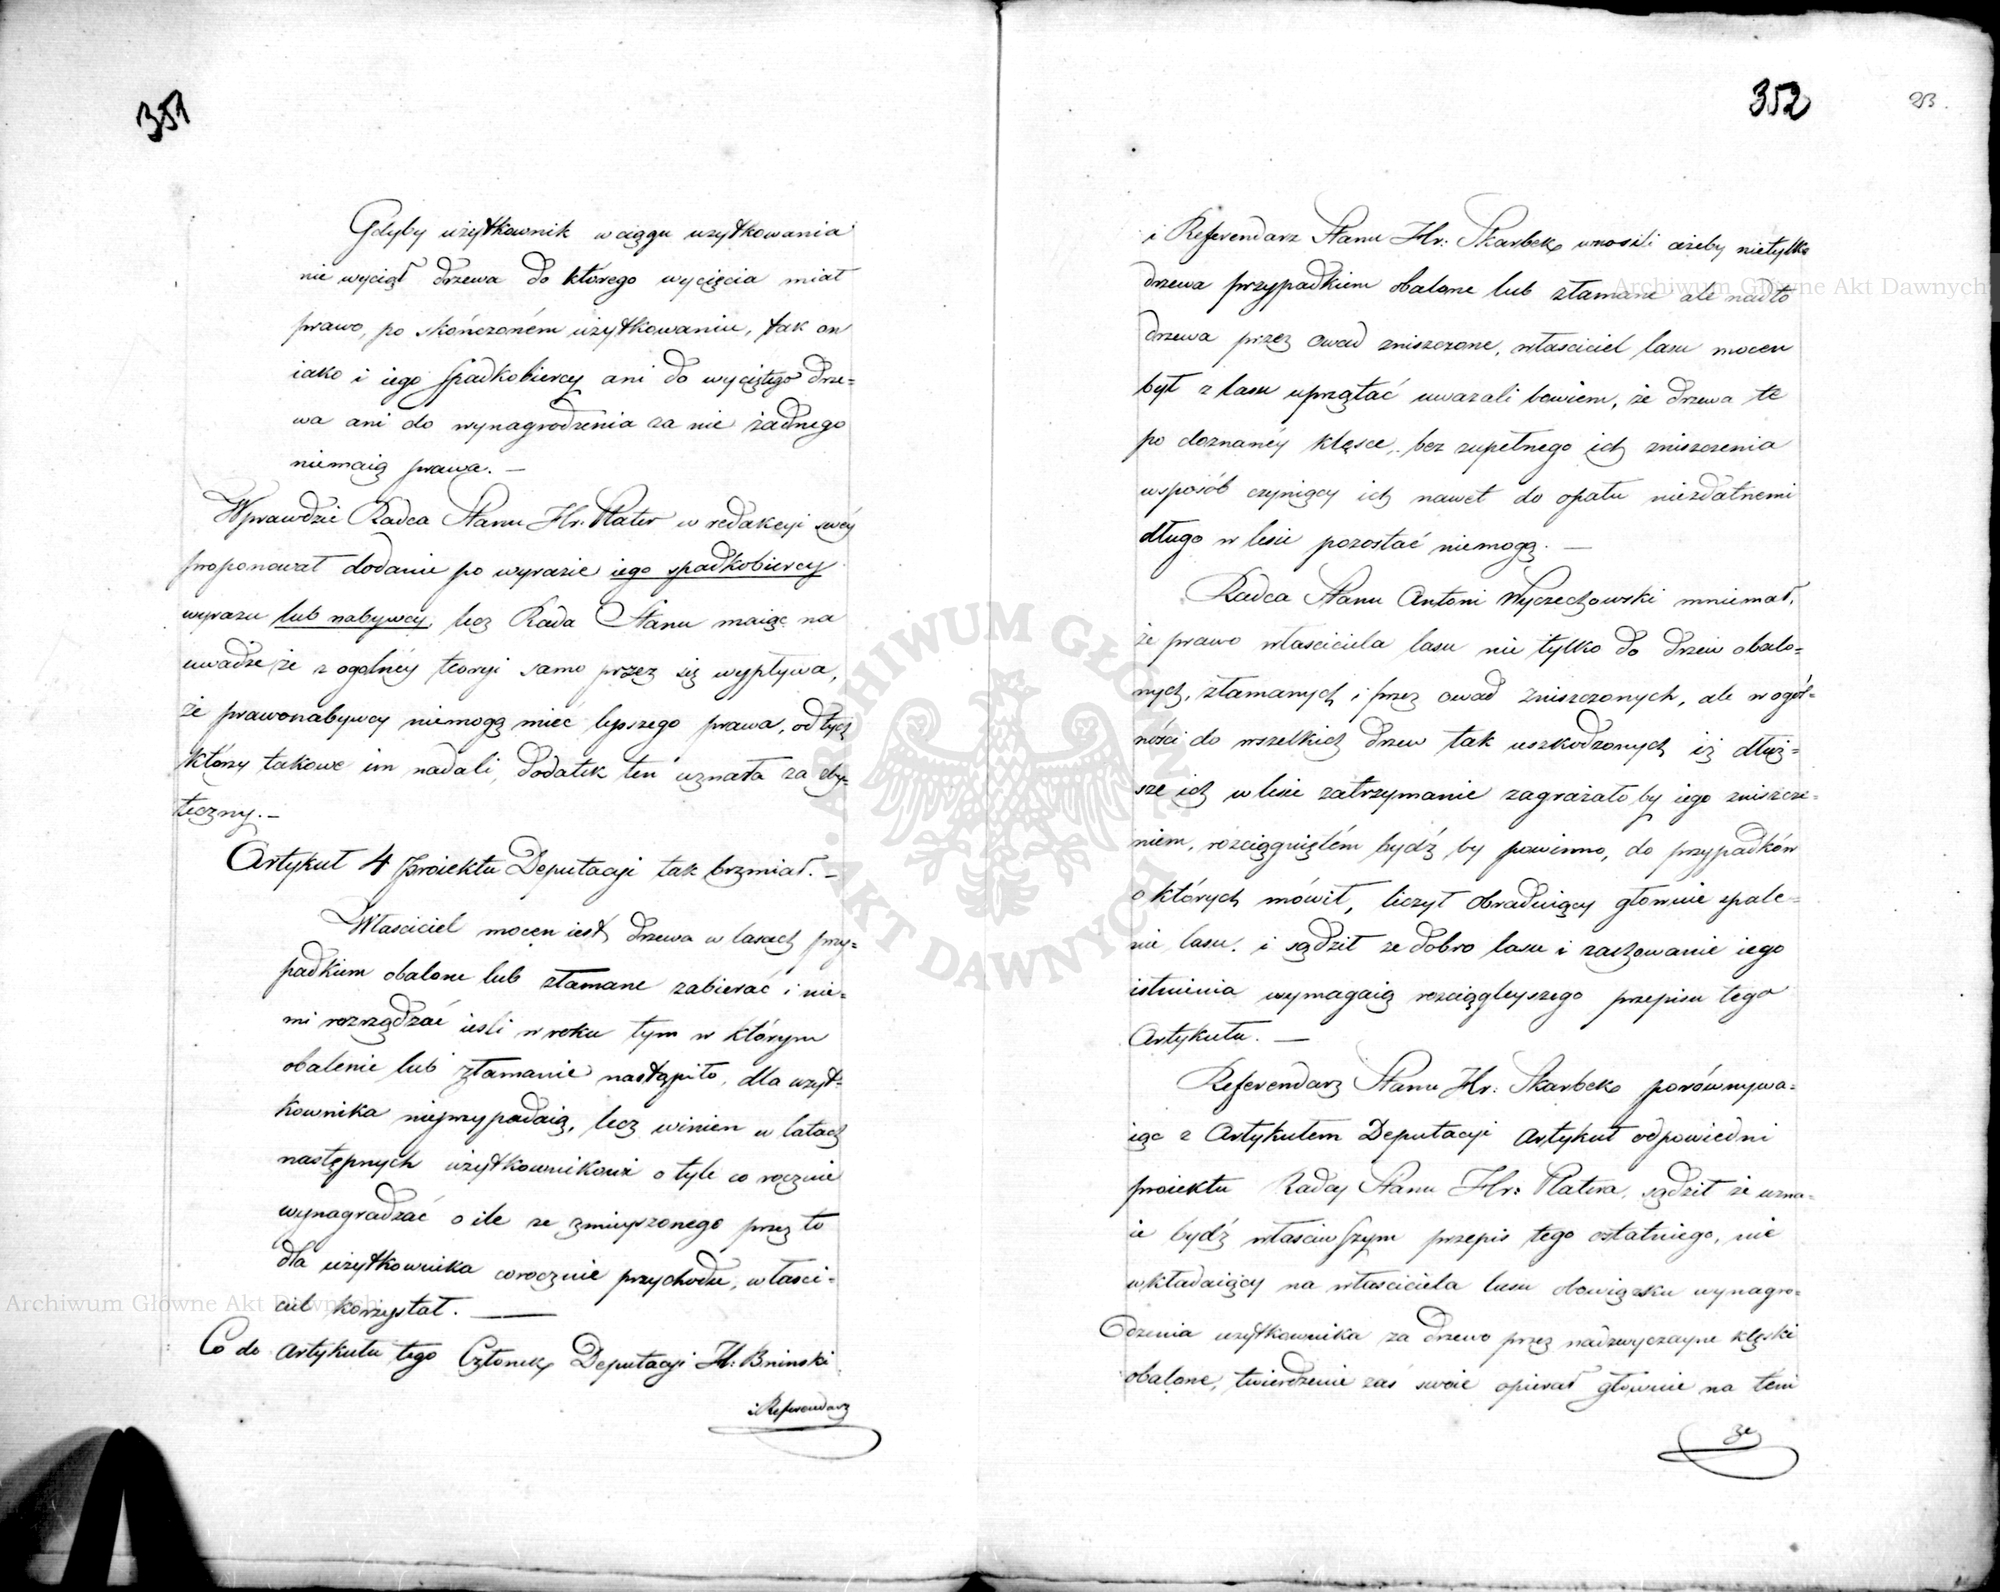 351
Gdyby użytkownik wciągu użytkowania
nie wyciął drzewa do którego wycięcia miał
prawo, po skończoném użytkowaniu, tak on
iako i iego spadkobiercy ani do wyciętego drze=
wa ani do wynagrodzenia za nie żadnego
niemaią prawa. —
Wprawdzie Radca Stanu Hr. Plater w redakcyi swéy
proponował dodanie po wyrazie iego spadkobiercy
wyrazu lub nabywcy, lecz Rada Stanu maiąc na
uwadze że z ogólnéy teoryi samo przez się wypływa,
że prawonabywcy niemogą mieć lepszego prawa, od tych
którzy takowe im nadali, dodatek ten uznała za zby=
teczny. —
Artykuł 4 proiektu Deputacyi tak brzmiał. —
Właściciel mocen iest drzewa w lasach przy=
padkiem obalone lub złamane zabierać i nie=
mi rozrządzać ieśli w roku tym w którym
obalenie lub złamanie nastąpiło, dla użyt=
kownika nieprzypadaią, lecz winien w latach
następnych użytkownikowi o tyle co rocznie
wynagradzać o ile ze zmnieyszonego przez to
dla użytkownika corocznie przychodu, właści=
ciel korzystał. —
Co do artykułu tego Członek Deputacyi H: Bninski
i Referendarz
352
23.
i Referendarz Stanu Hr: Skarbek wnosili ażeby nietylko
drzewa przypadkiem obalone lub złamane ale nadto
drzewa przez owad zniszczone, właściciel lasu mocen
był z lasu uprzątać uważali bowiem, że drzewa te
po doznanéy klęsce, bez zupełnego ich zniszczenia
wsposób czyniący ich nawet do opału niezdatnemi
długo w lesie pozostać niemogą. —
Radca Stanu Antoni Wyczechowski mniemał,
że prawo właściciela lasu nie tylko do drzew obalo=
nych, złamanych i przez owad zniszczonych, ale w ogól=
ności do wszelkich drzew tak uszkodzonych iż dłuż=
sze ich w lesie zatrzymanie zagrażało by iego zniszcze=
niem, rozciągniętém bydź by powinno, do przypadków
o których mówił, liczył obraduiący głównie spale=
nie lasu. i sądził ze dobro lasu i zachowanie iego
istnienia wymagaią rozciągleyszego przepisu tego
Artykułu. —
Referendarz Stanu Hr: Skarbek porównywa=
iąc z Artykułem Deputacyi artykuł odpowiedni
proiektu Radcy Stanu Hr: Platera, sądził że uzna=
ie bydź właściwszym przepis tego ostatniego, nie
wkładaiący na właściciela lasu obowiązku wynagro=
dzenia użytkownika za drzewo przez nadzwyczayne klęski
obalone, twierdzenie zaś swoie opierał głównie na tem
że
Archiwum Główne Akt Dawnych
Archiwum Główne Akt Dawnych
ARCHIWUM GŁÓWNE AKT DAWNYCH